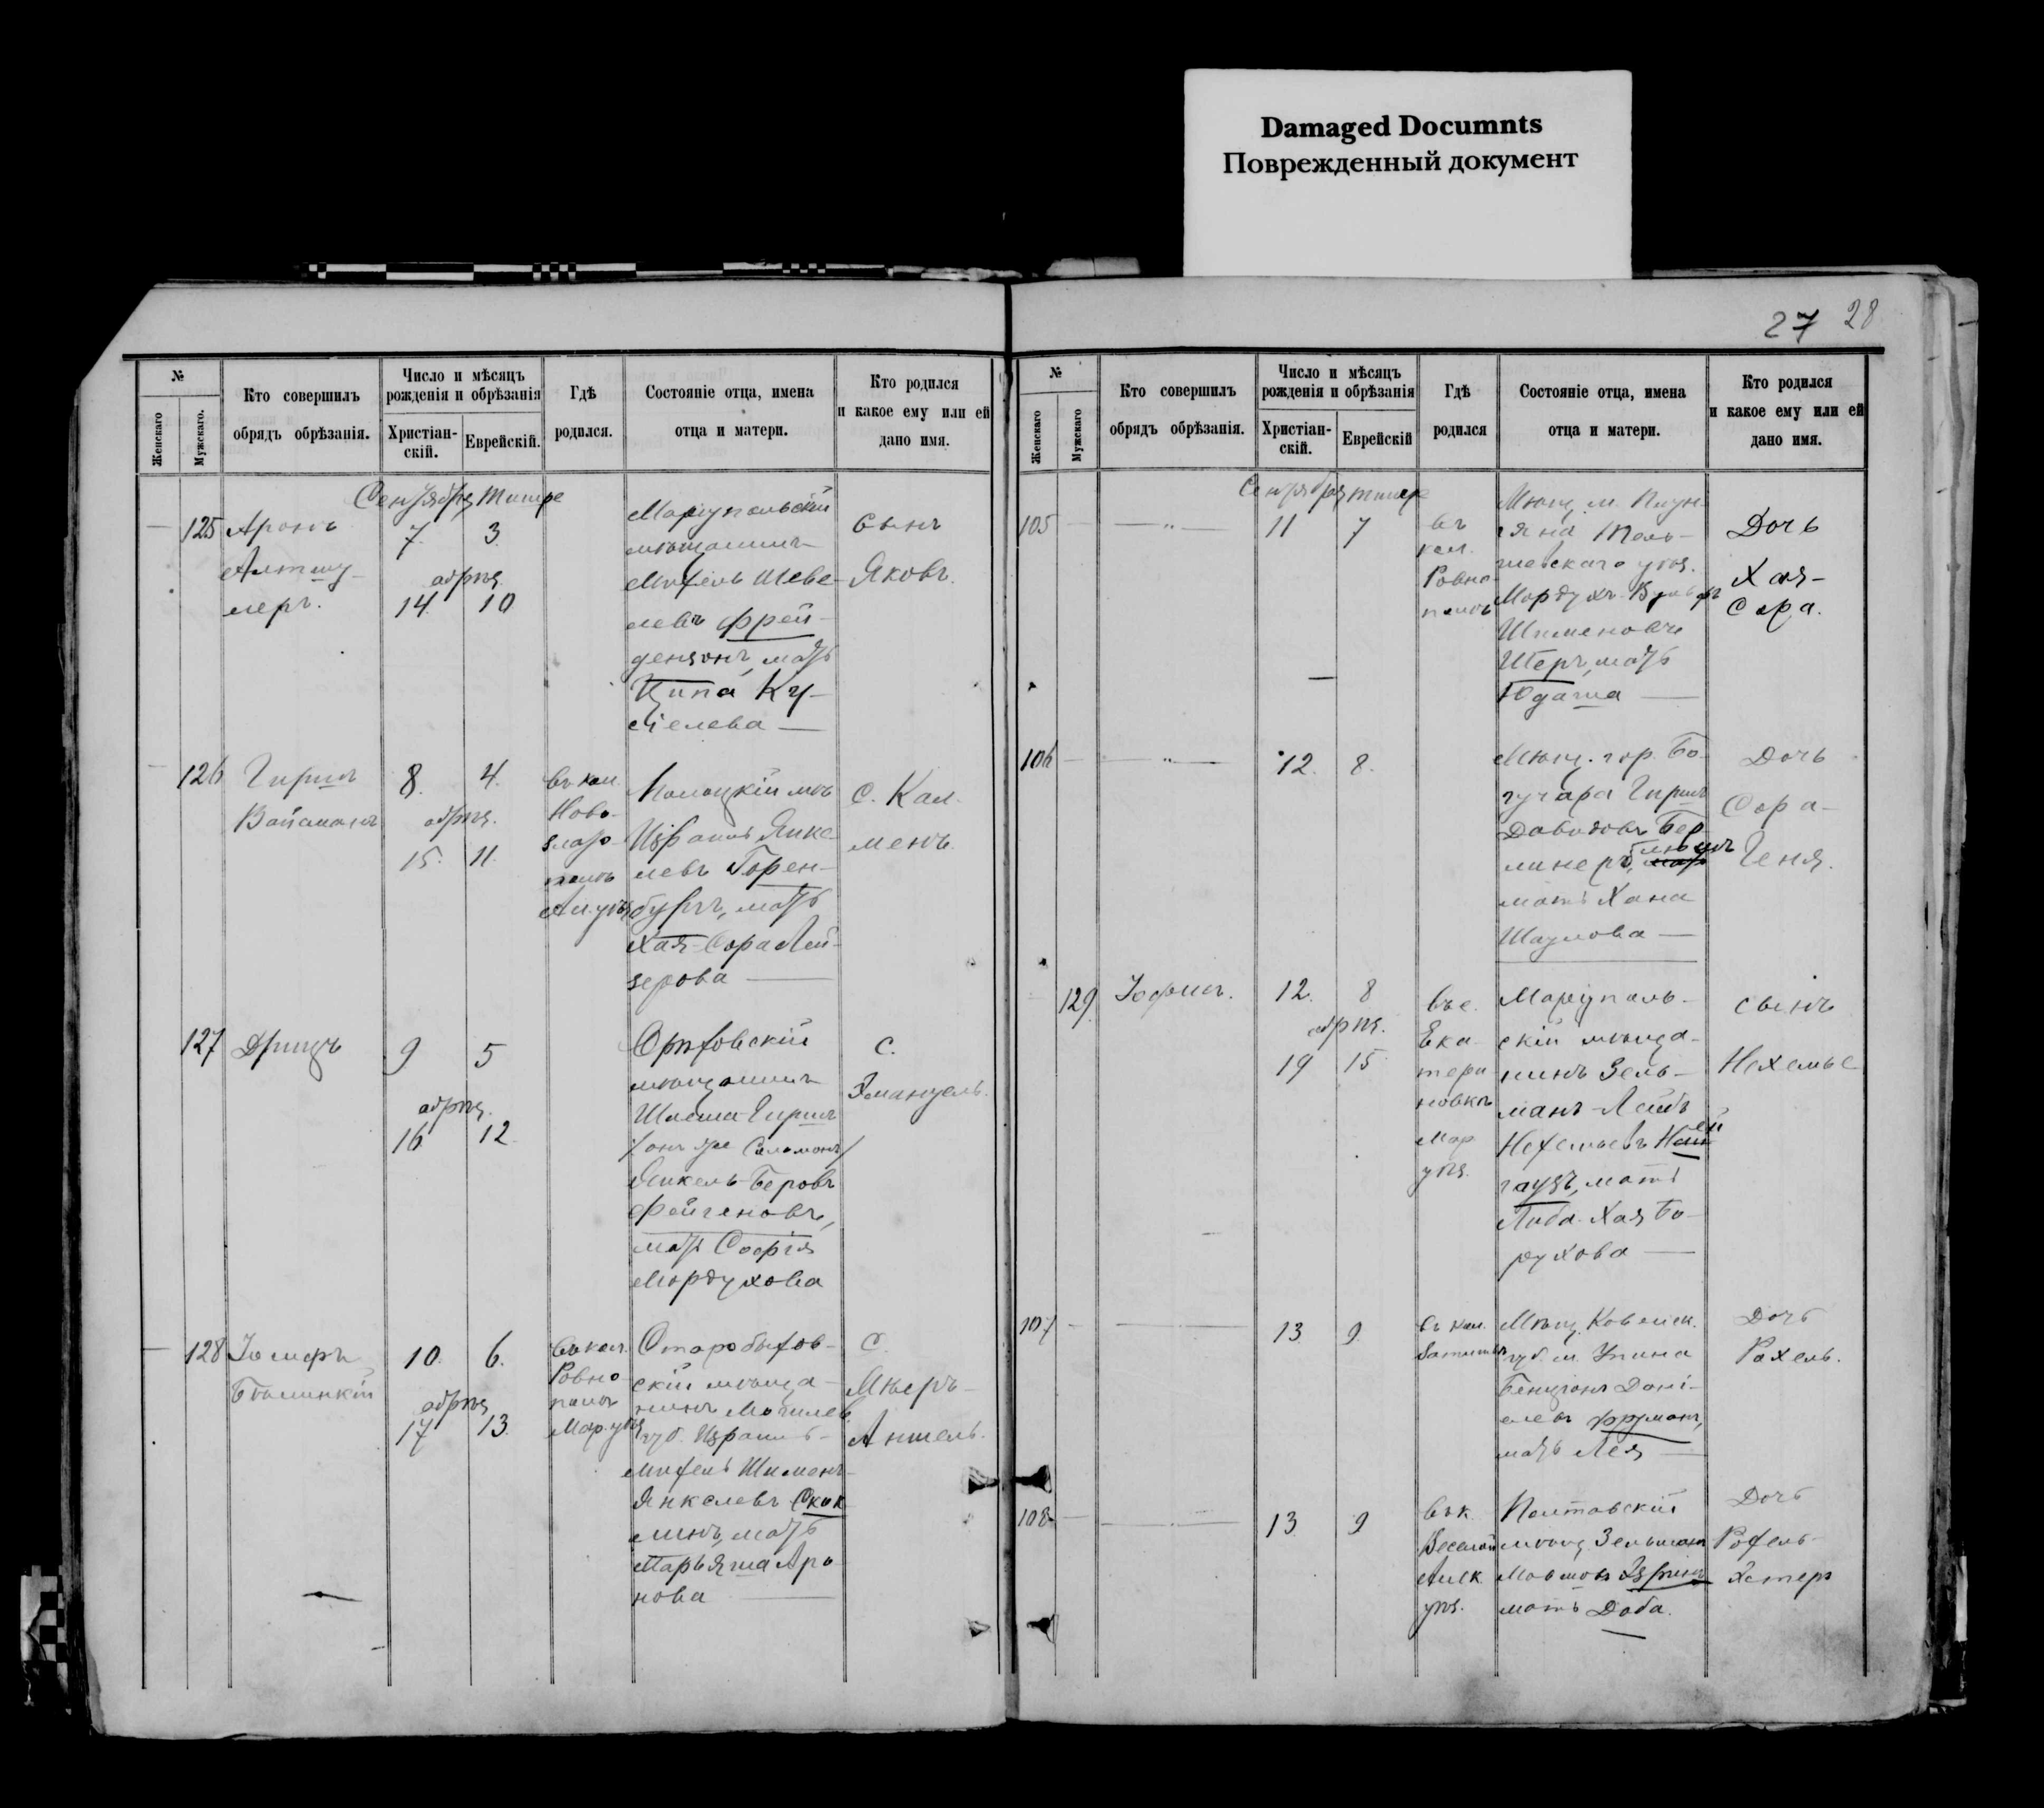 Damaged Documnts
Поврежденный документ
27 28
№
Женскаго
Мужскаго.
Кто совершилъ
обрядъ обрѣзанія.
Число и мѣсяцъ
рожденія и обрѣзанія
Христіан-
скій.
Еврейскій.
Гдѣ
родился.
Состояніе отца, имена
отца и матери.
Кто родился
и какое ему или ей
дано имя.
Сентября Тишре
125
Аронъ
Альтшу-
леръ.
7. 3.
обрѣз.
14. 10
Маріупольскій
мѣщанинъ
Михель Шеве-
левъ Фрей-
дензонъ, мать
Ципа Ку-
сіелева —
Сынъ
Яковъ.
126
Гиршъ
Вайсманъ
8. 4.
обрѣз.
15. 11.
въ кол.
Ново-
злато-
поль
Ал. уѣз
Полоцкій мѣщ
Израиль Янке-
левъ Горен-
бургъ, мать
Хая-Сора Лей-
зерова —
С. Кал-
менъ.
127
Дрицъ
9 5
обрѣз.
16 12
Орѣховскій
мѣщанинъ
Шлема-Гиршъ
/онъ же Саломонъ/
Янкель-Беровъ
Фейгеновъ,
мать Софія
Мордухова
С.
Эмануель.
128
Іосифъ
10. 6.
обрѣз.
17 13.
въ кол.
Ровно-
поль
Мар. уѣз
Старобыхов-
скій мѣща-
нинъ Могилев.
губ. Израиль-
Михель Шимонъ-
Янкелевъ Скок-
линъ, мать
Марьяша Аро-
нова —
С.
Мееръ-
Аншель.
№
Женскаго
Мужскаго
Кто совершилъ
обрядъ обрѣзанія.
Число и мѣсяцъ
рожденія и обрѣзанія
Христіан-
скій.
Еврейскій
Гдѣ
родился
Состояніе отца, имена
отца и матери.
Кто родился
и какое ему или ей
дано имя.
Сентября Тишре
105
— „ —
11 7
въ
кол.
Ровно-
поль
Мѣщ. м. Плун-
гяна Тель-
шевскаго уѣз.
Мордухъ-Вульфъ
Шименовъ
Штеръ, мать
Юдаша —
Дочь
Хая-
Сора.
106
— „ —
12. 8.
Мѣщ. гор. Бо-
гучара Гиршъ
Давидовъ Бер-
линер
мать Хана
Шаулова —
Дочь
Сора-
Геня.
129
12. 8
обрѣз.
19 15.
въ с.
Ека-
тери-
новкѣ
Мар.
уѣз.
Маріуполь-
скій мѣща-
нинъ Зель-
манъ-Лейбъ
Нехемьевъ Ней
гаузъ, мать
Либа-Хая Бо-
рухова —
сынъ
Нехемье
107
13 9.
въ кол.
Затишье
Мѣщ. Ковенск.
губ. м. Упина
Бенціонъ Дані-
елевъ Фурманъ,
мать Лея —
Дочь
Рохель.
108
13 9
въ к.
Веселой
Алек.
уѣз.
Полтавскій
мѣщ. Зельманъ
мать Доба.
Дочь
Рохель-
Эстеръ